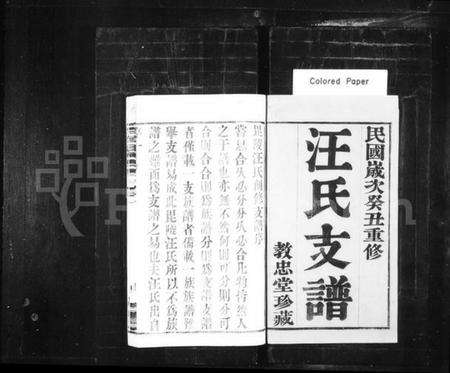 Colored Paper
民國歲次癸丑重修
汪氏支譜
敦忠堂珍藏
毘陵汪氏創修支譜序
嘗思合久必分分久必合凡物皆然人
之于譜也亦無不然何則可分則分可
合則合合則為族譜分則為支譜支譜
者僅載一支族譜者備載一族族譜難
舉支譜易成此毘陵汪氏所以不為族
譜之難而為支譜之易也夫汪氏出自